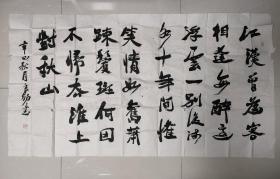 江漢曾為客
相逢每醉還
浮雲一別後流
水十年間歡
笑情如舊蕭
疎鬢斑何因
不歸去淮上
對秋山
辛丑秋月